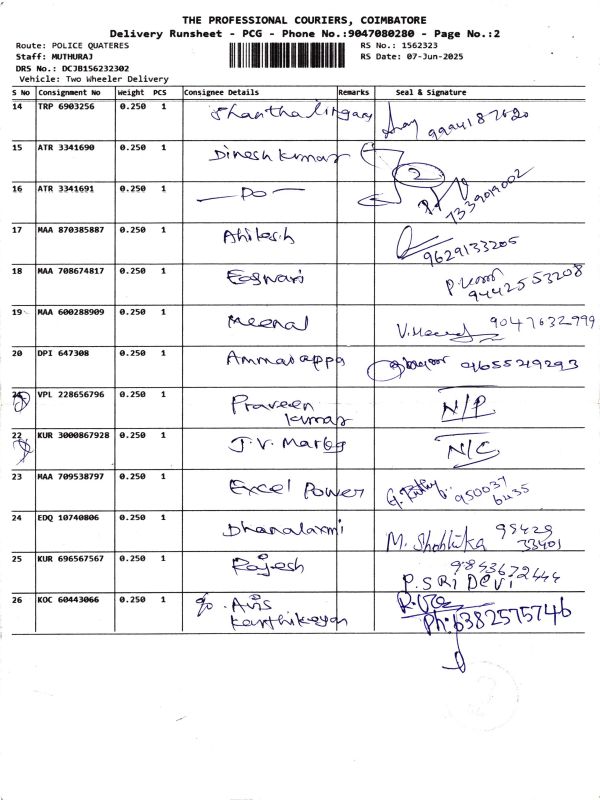 THE PROFESSIONAL COURIERS, COIMBATORE
Delivery Runsheet - PCG - Phone No.:9047080280 - Page No.:2
Route: POLICE QUATERES RS No.: 1562323
Staff: MUTHURAJ RS Date: 07-Jun-2025
DRS No.: DCJB156232302
Vehicle: Two Wheeler Delivery
S No Consignment No Weight PCS Consignee Details Remarks Seal & Signature
14 TRP 6903256 0.250 1 Shanthalingam 9994187620
15 ATR 3341690 0.250 1 Dinesh kumar
2
16 ATR 3341691 0.250 1 — Do — 7339019002
17 MAA 870385887 0.250 1 Ahilesh 9629133205
18 MAA 708674817 0.250 1 Eagwari 9442553208
19 MAA 600288909 0.250 1 Meenal 9047632999
20 DPI 647308 0.250 1 Ammasaappa 9655219293
VPL 228656796 0.250 1 Praveen kumar N/P
22 KUR 3000867928 0.250 1 J.V. N/C
23 MAA 709538797 0.250 1 Excel Power 950037
6435
24 EDQ 10740806 0.250 1 Dhanalaxmi M. Shobhika 95429
33401
25 KUR 696567567 0.250 1 Rajesh 9843672444
P.SRI DEVI
26 KOC 60443066 0.250 1 Avis
karthikeyan Ph:6382575746